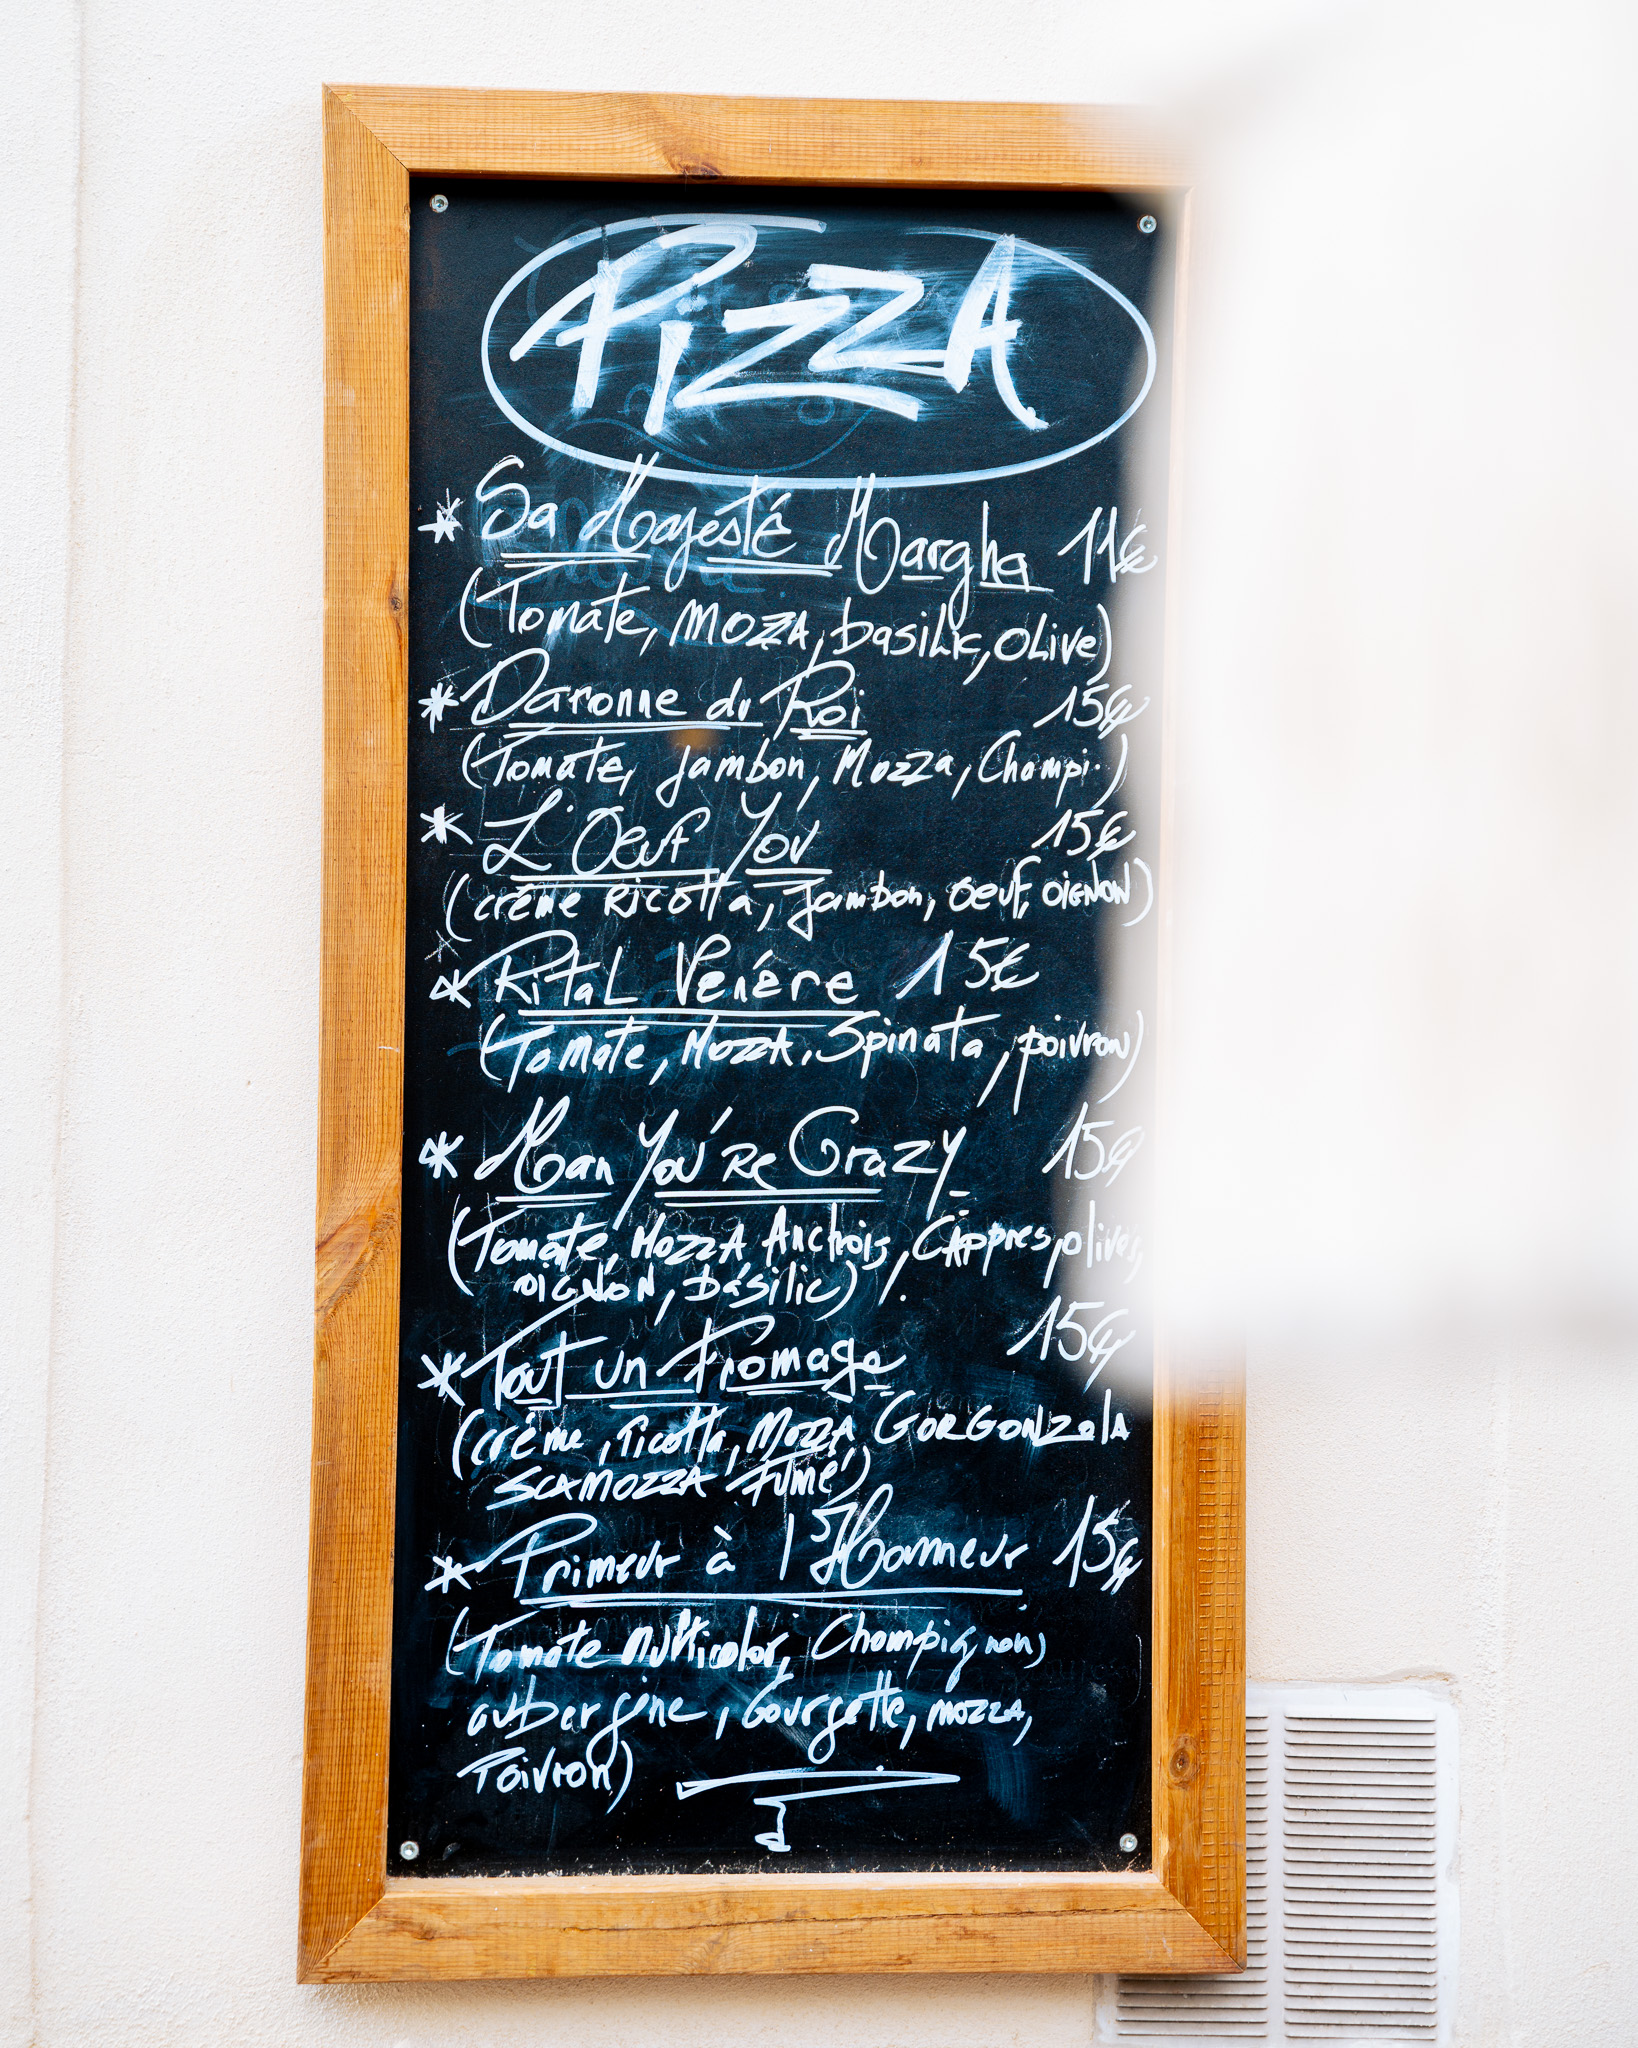 PizzA
* Sa Majesté Margha 11€
(Tomate, MOZZA, basilic, olive)
* Daronne du Roi 15€
(Tomate, jambon, Mozza, Champi.)
* L'Oeuf You 15€
(crème Ricotta, jambon, oeuf, oignon)
* Rital Venère 15€
(Tomate, MozzA, Spinata, poivron)
* Man You're Crazy 15€
(Tomate, MozzA Anchois, CÂppres, olives,
oignon, basilic)
* Tout un Fromage 15€
(crème, ricotta, Mozza, GORGONZola
SCAMOZZA Fumé)
* Primeur à l'Honneur 15€
(Tomate Multicolor, Champignon,
aubergine, Courgette, mozzA,
Poivron)